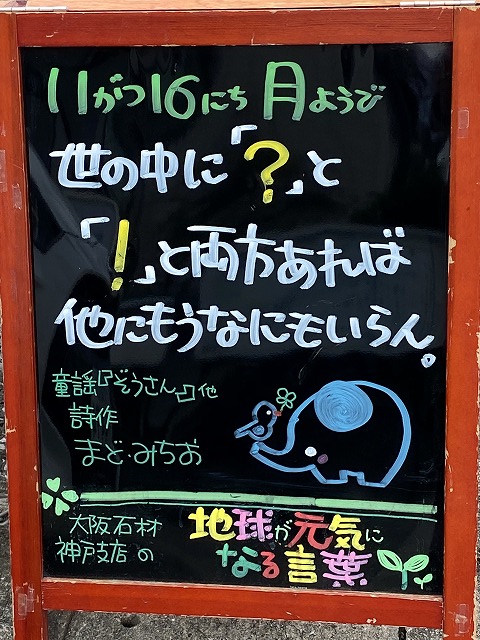 11がつ16にち 月ようび
世の中に「?」と
「!」と両方あれば
他にもうなにもいらん。
童謡『ぞうさん』他
詩作
まど・みちお
大阪石材
神戸支店の
地球が元気に
なる言葉